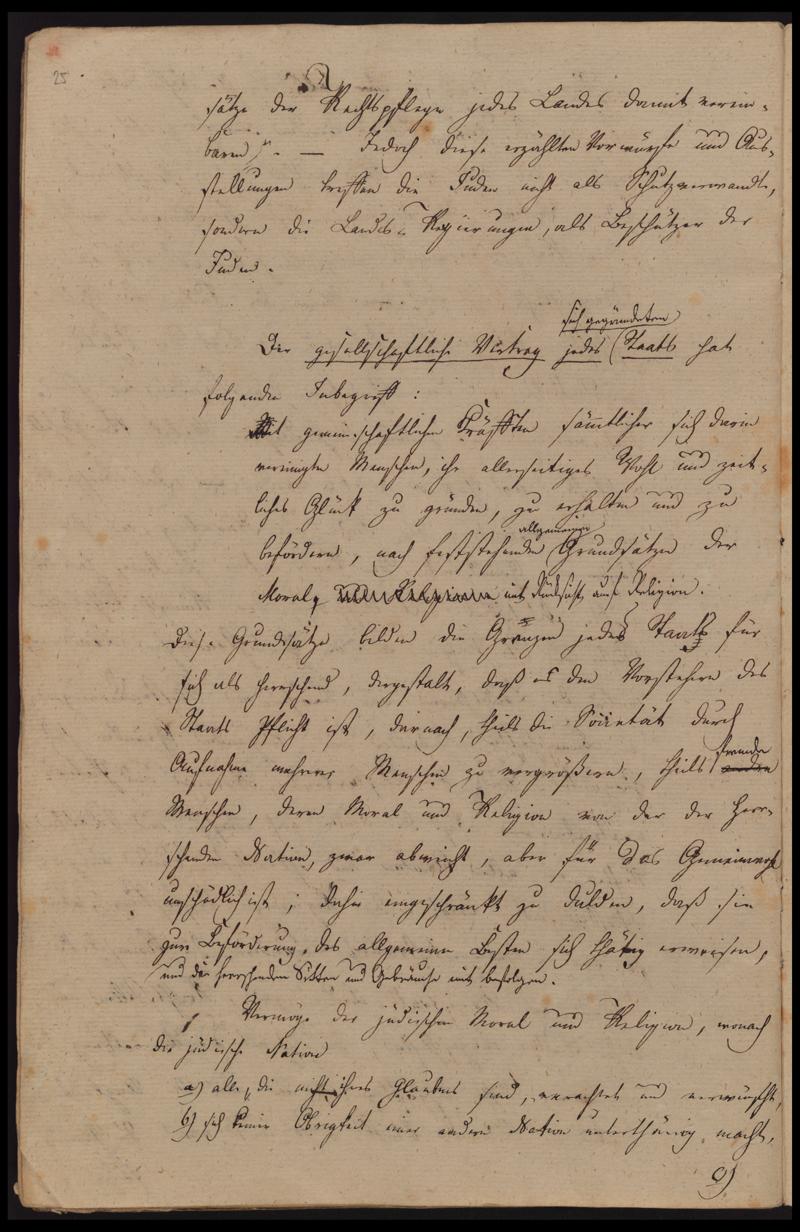 25
sätze der Rechtspflege jedes Landes damit verein-
baren)". — Jedoch diese erzählten Vorwürfe und Aus-
stellungen treffen die Juden nicht als Schutzverwandte,
sondern die Landes-Regierungen, als Beschützer der
Juden.
sich gegründeten
Der gesellschaftliche Vertrag jedes Staats hat
folgenden Inbegriff:
Mit gemeinschaftlichen Kräfften sämtlicher sich darin
vereinigten Menschen, ihr allerseitiges Wohl und zeit-
liches Glück zu gründen, zu erhalten und zu
allgemeinen
befördern, nach feststehenden Grundsätzen der
Moral, mit Rücksicht auf Religion.
Diese Grundsätze bilden die Gränzen jedes Staats für
sich als herrschend, dergestalt, daß es den Vorstehern des
Staats Pflicht ist, darnach, theils die Societät durch
Aufnahme mehrerer Menschen zu vergrößern, theils
fremde
Menschen, deren Moral und Religion von der der herr-
schenden Nation, zwar abweicht, aber für das Gemeinwohl
unschädlich ist; dahin eingeschränkt zu dulden, daß sie
zur Beförderung des allgemeinen Besten sich thätig erweisen,
und die herrschenden Sitten und Gebräuche mit befolgen.
Vermöge der jüdischen Moral und Religion, wonach
die jüdische Nation
a) alle, die nicht ihres Glaubens sind, verachtet und verwünscht,
b) sich keiner Obrigkeit einer andern Nation unterthänig macht,
c)